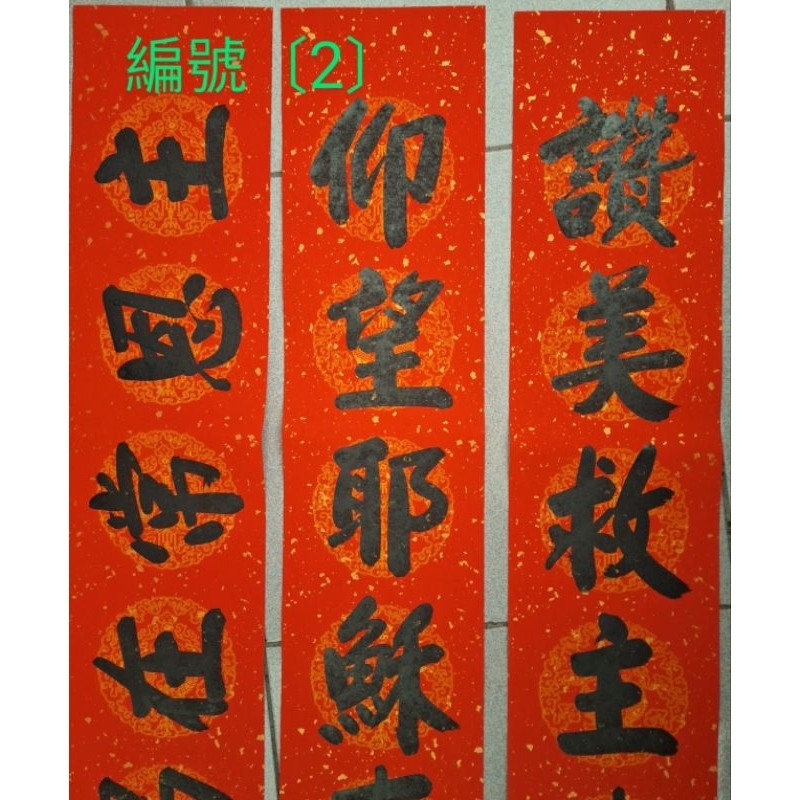 編號〔2〕
讚美救主
仰望耶穌
主恩常在